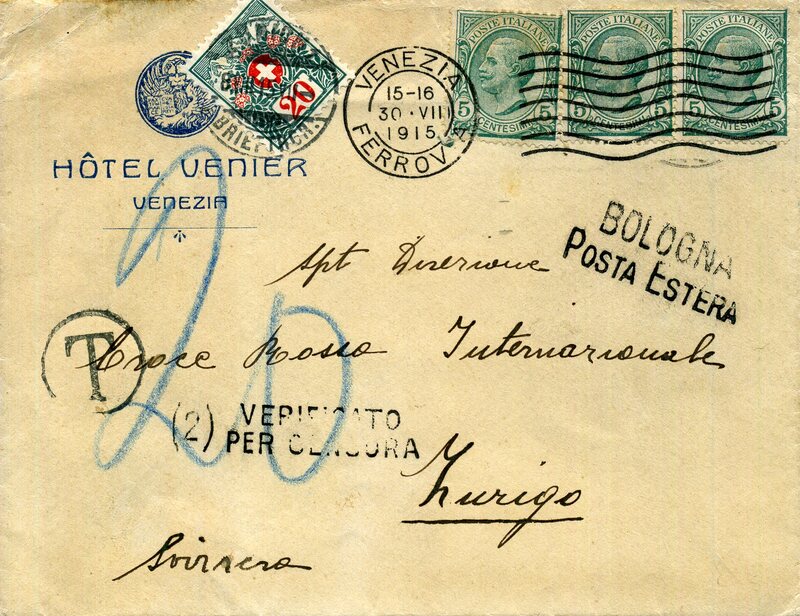 POSTE ITALIANE POSTE ITALIANE POSTE ITALIANE
5 CENTESIMI 5 5 CENTESIMI 5 5 CENTESIMI 5
VENEZIA
15-16
30·VII
1915
FERROVIA
20
BRIEFTR.
HÔTEL VENIER
VENEZIA
BOLOGNA
POSTA ESTERA
Spt Direzione
T
Croce Rossa Internazionale
20
(2) VERIFICATO
PER CENSURA
Zurigo
Svizzera